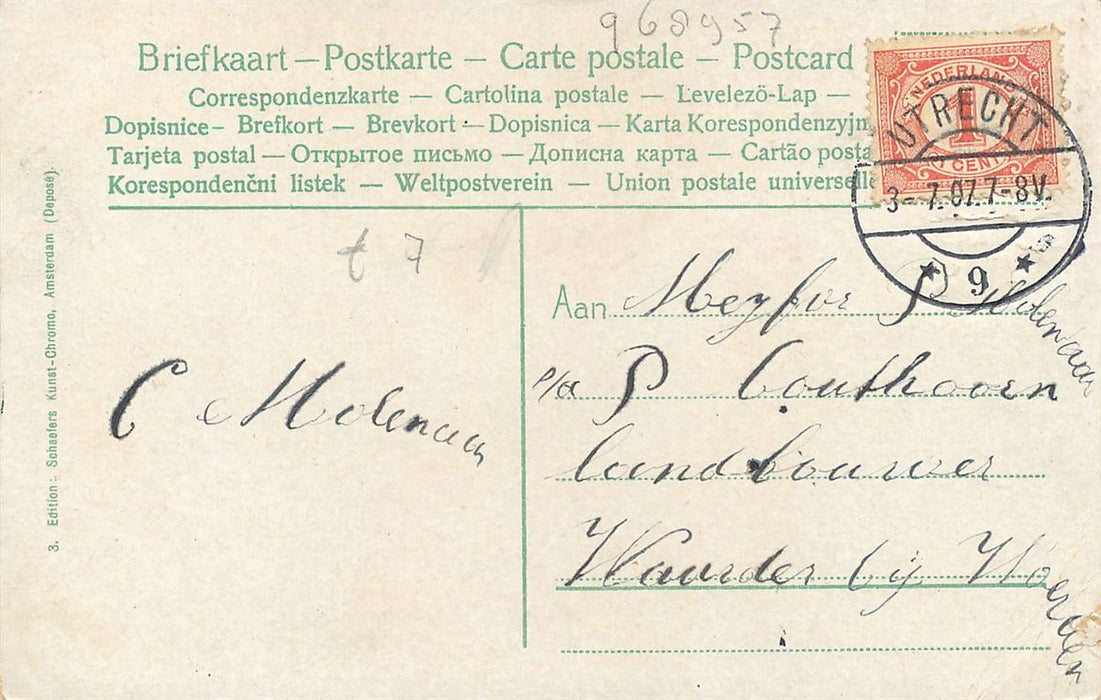 968957
Briefkaart — Postkarte — Carte postale — Postcard
Correspondenzkarte — Cartolina postale — Levelező-Lap —
Dopisnice — Brefkort — Brevkort — Dopisnica — Karta Korespondenzyjn
Tarjeta postal — Открытое письмо — Дописна карта — Cartão posta
Korespondenční listek — Weltpostverein — Union postale universelle
NEDERLAND
1
CENT
UTRECHT
3- 7.07.7-8V.
9
t 7
3. Edition: Schaefers Kunst-Chromo, Amsterdam (Deposé).
C Molenaar
Aan Mejfer J Molenaar
p/a P Couthoorn
landbouwer
Waarder bij Woerden